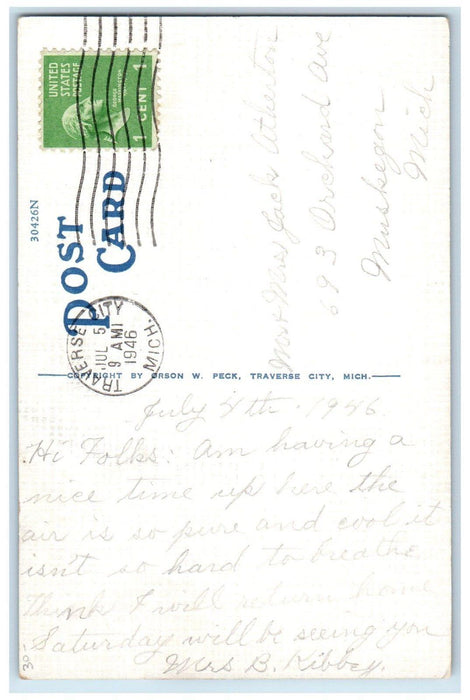 UNITED
STATES
POSTAGE
GEORGE
WASHINGTON
1 CENT 1
30426N
POST
CARD
TRAVERSE CITY
JUL 5
9 AM
1946
MICH.
Mr & Mrs Jack Atherton
693 Orchard Ave
Muskegon
Mich
COPYRIGHT BY ORSON W. PECK, TRAVERSE CITY, MICH.
July 4th 1946
Hi Folks: Am having a
nice time up here the
air is so pure and cool it
isn't so hard to breathe
Think I will return home
Saturday will be seeing you
Mrs B. Kibbey.
30